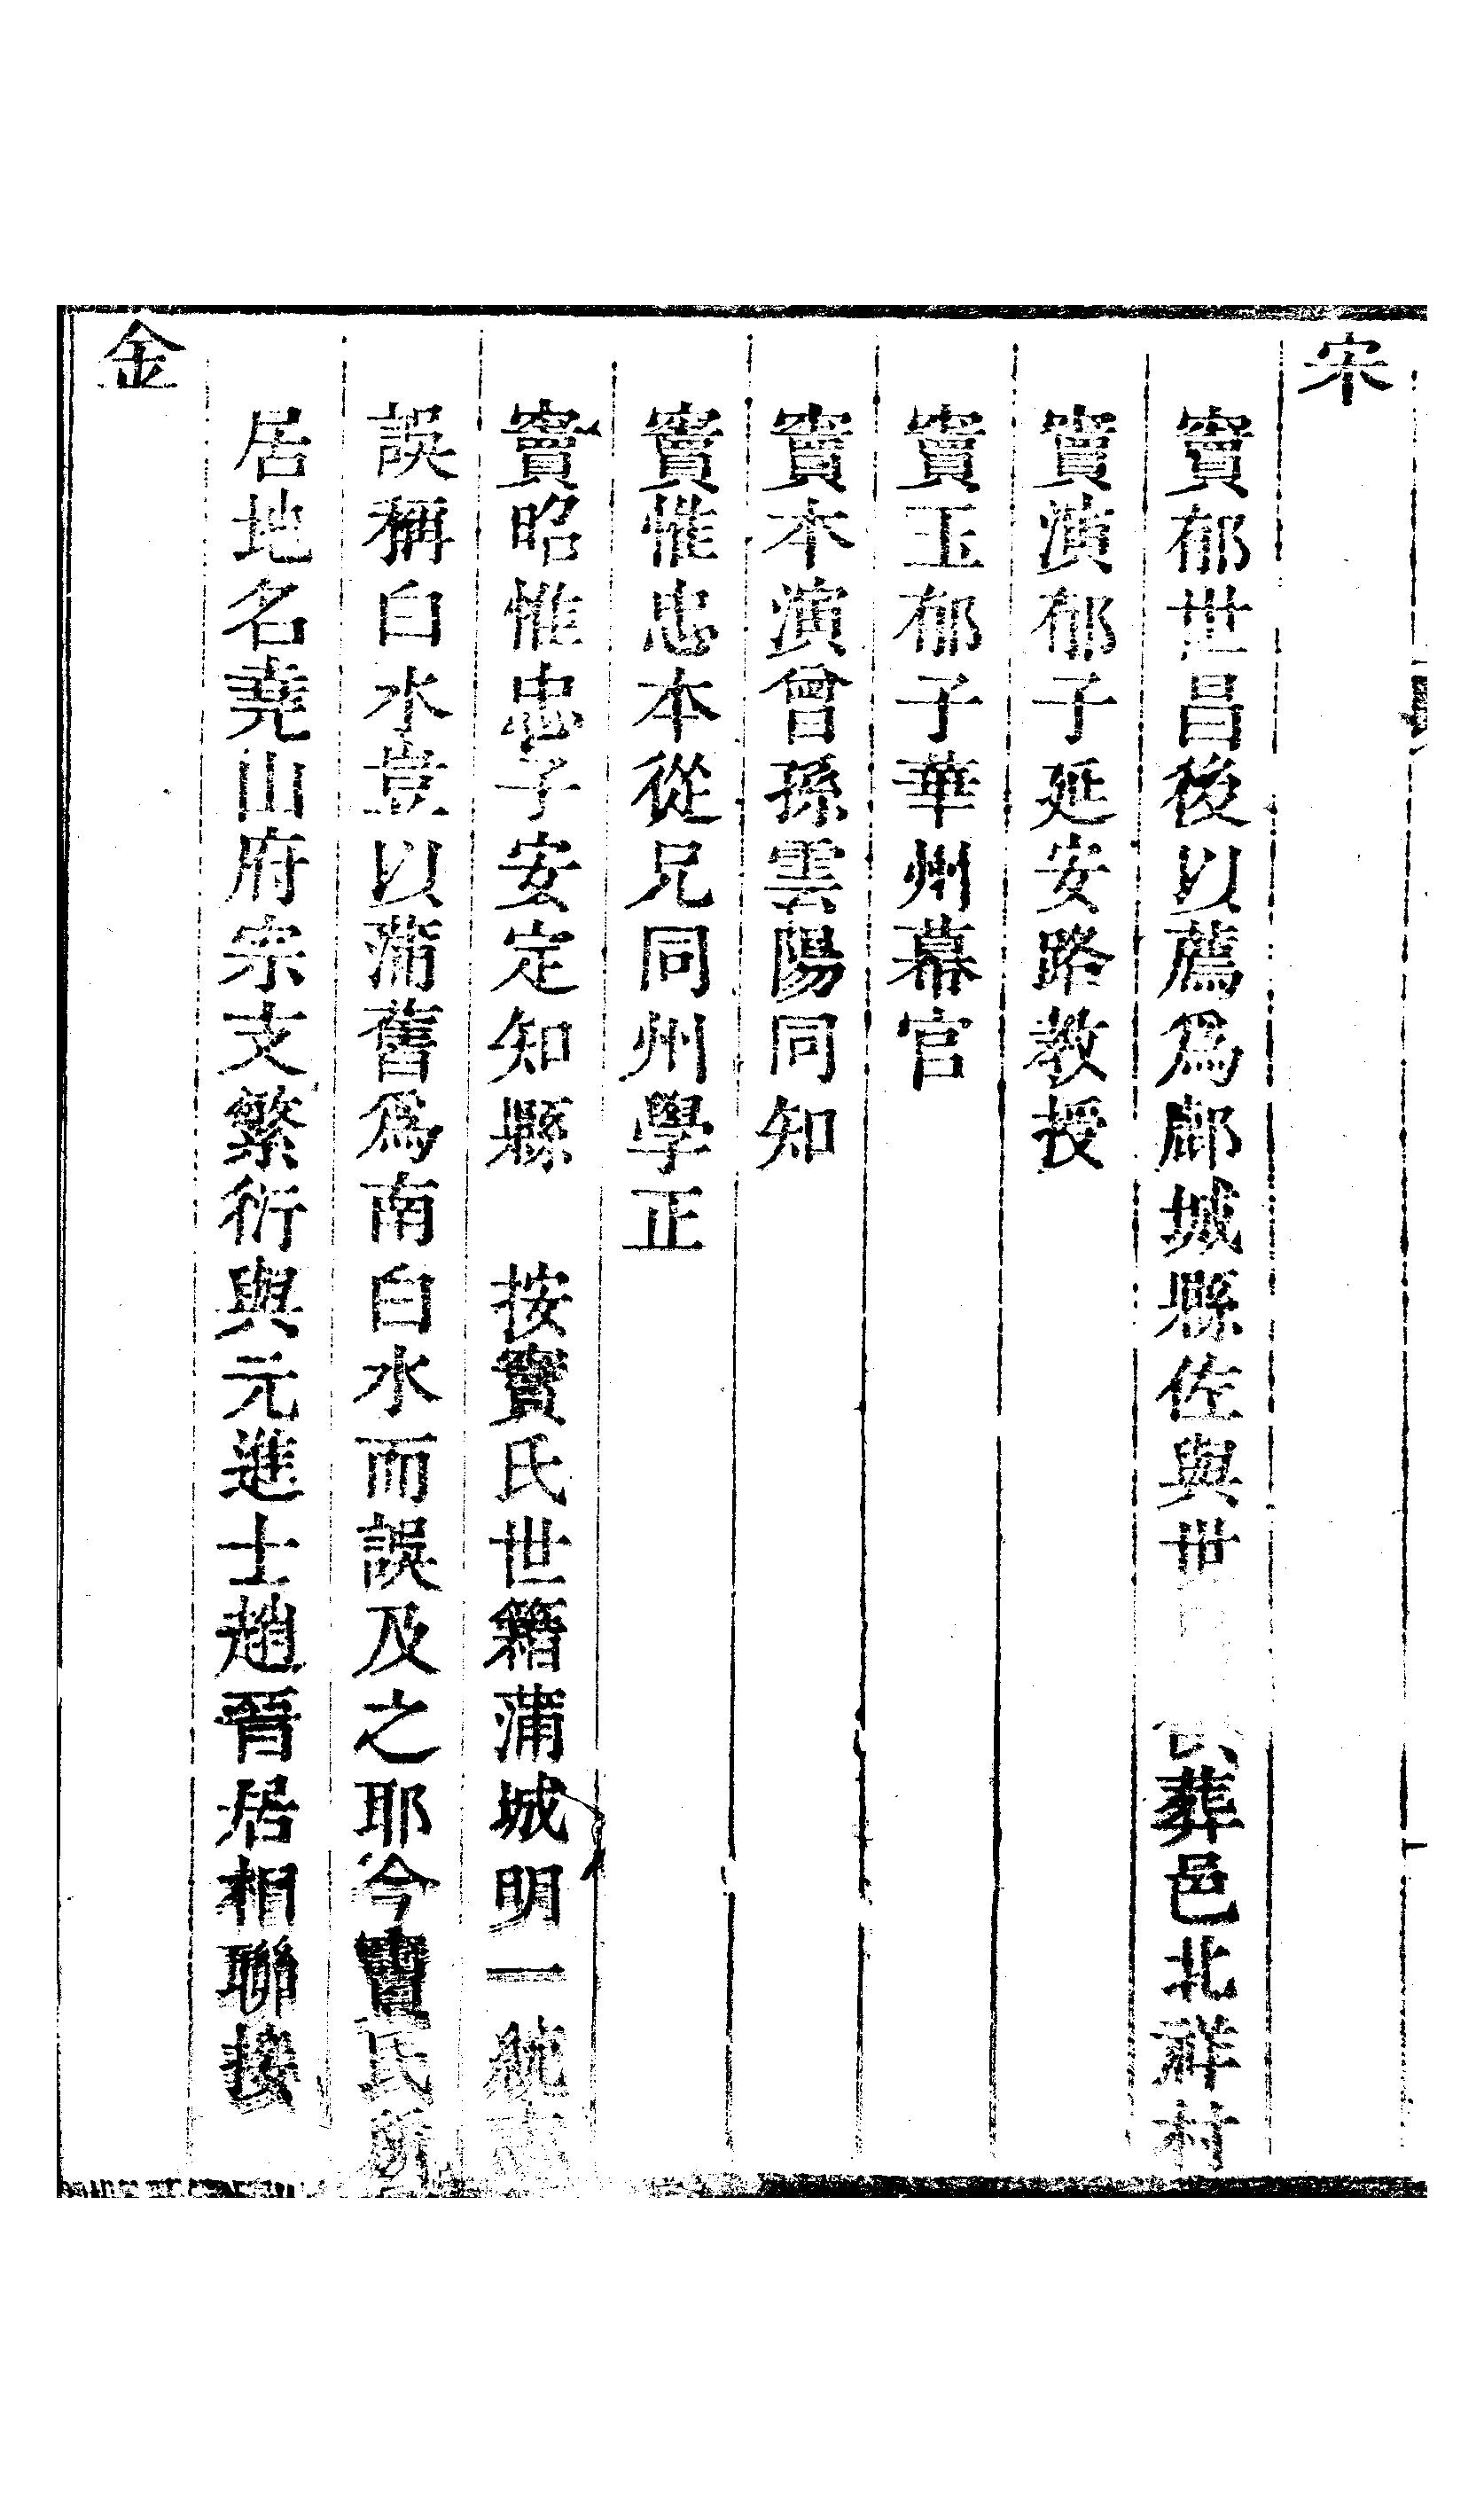 宋
竇郁世昌後以薦爲鄜城縣佐與世葬邑北祥村
竇演郁子延安路教授
竇玉郁子華州幕官
竇本演曾孫雲陽同知
竇惟忠本從兄同州學正
竇昭惟忠子安定知縣　按竇氏世籍蒲城明一統志
誤稱白水豈以蒲舊爲南白水而誤及之耶今竇氏所
居地名堯山府宗支繁衍與元進士趙晉居相聯接
金